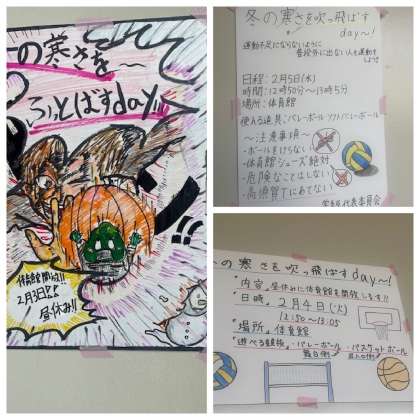 の寒さを〜
ふっとばすday!!
体育館開放!!
2月3日!!
昼休み!!
冬の寒さを吹っ飛ばす
day〜!
運動不足にならないように
普段外に出ない人も運動を
しよう
日程:2月5日(水)
時間:12時50分〜13時5分
場所:体育館
使える道具:バレーボール ソフトバレーボール
〜注意事項〜
・ボールをけらない
・体育館シューズ絶対
・危険なことはしない
・高須賀てにあてない
代表委員会
の寒さを吹っ飛ばすday〜!
・内容.昼休みに体育館を開放します!!
・日時.2月4日(火)
12:50〜13:05
・場所.体育館
・遊べる競技.・バレーボール ・バスケットボール